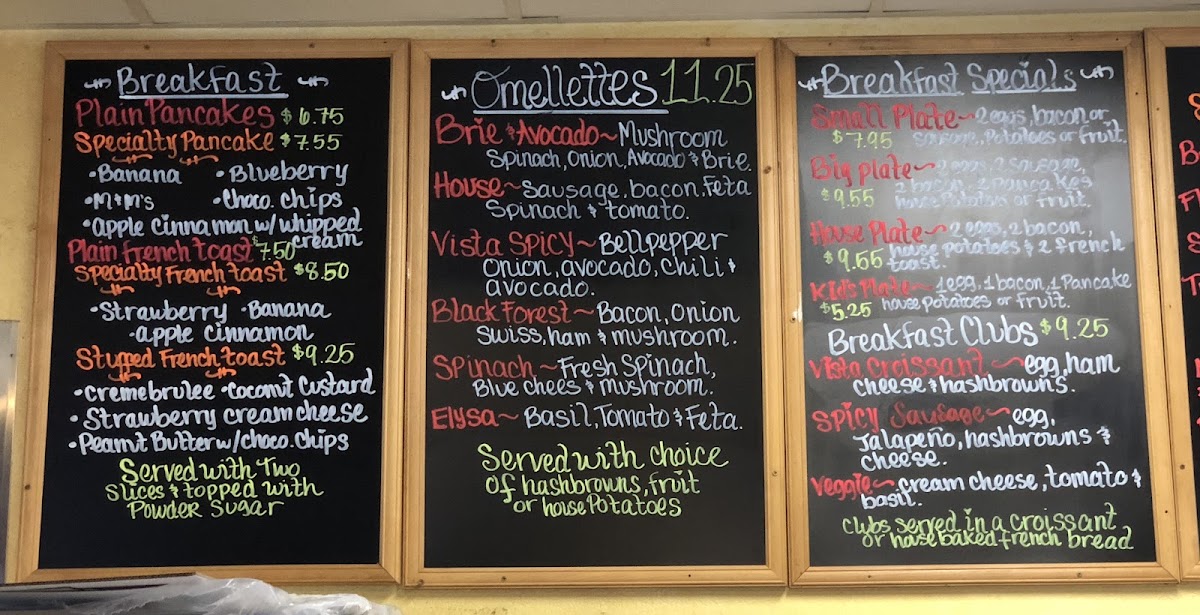 Breakfast
Plain Pancakes $6.75
Specialty Pancake $7.55
•Banana •Blueberry
•M&M's •Choco. chips
•apple cinnamon w/ whipped
cream
Plain french toast $7.50
Specialty French toast $8.50
•Strawberry •Banana
•apple cinnamon
Stuffed French toast $9.25
•Cremebrulee •Coconut Custard
•Strawberry cream cheese
•Peanut Butter w/choco. chips
Served with Two
slices & topped with
Powder Sugar
Omellettes 11.25
Brie & Avocado~ Mushroom
Spinach, Onion, Avocado & Brie.
House~ Sausage, bacon, Feta
Spinach & tomato.
Vista Spicy~ Bellpepper
Onion, avocado, chili &
avocado.
Black Forest~ Bacon, Onion
Swiss, ham & mushroom.
Spinach~ Fresh Spinach,
Blue chees & mushroom.
Elysa~ Basil, Tomato & Feta.
Served with choice
of hashbrowns, fruit
or house Potatoes
Breakfast Specials
Small Plate~ 2 eggs, bacon or
$7.95 sausage, Potatoes or fruit.
Big plate~ 2 eggs, 2 sausage,
$9.55 2 bacon, 2 pancakes
house Potatoes or fruit.
House Plate~ 2 eggs, 2 bacon,
$9.55 house potatoes & 2 french
toast.
Kid's Plate~ 1 egg, 1 bacon, 1 Pancake
$5.25 house potatoes or fruit.
Breakfast Clubs $9.25
Vista Croissant~ egg, ham
cheese & hashbrowns.
Spicy Sausage~ egg,
Jalapeño, hashbrowns &
cheese.
Veggie~ cream cheese, tomato &
basil.
Clubs served in a croissant
or house baked french bread